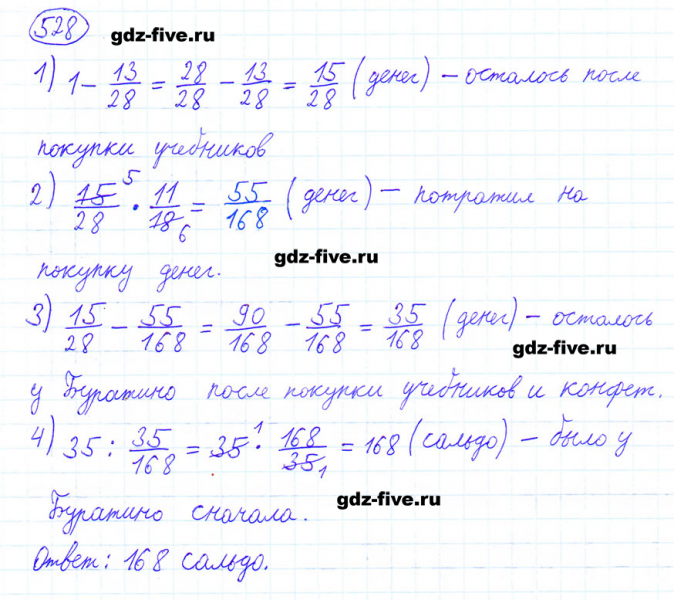 528
gdz-five.ru
1) 1 - 13/28 = 28/28 - 13/28 = 15/28 (денег) - осталось после
покупки учебников
2) 15/28 5 · 11/18 6 = 55/168 (денег) - потратил на
gdz-five.ru
покупку денег.
3) 15/28 - 55/168 = 90/168 - 55/168 = 35/168 (денег) - осталось
gdz-five.ru
у Буратино после покупки учебников и конфет.
4) 35 : 35/168 = 35 1 · 168/35 1 = 168 (сальдо) - было у
gdz-five.ru
Буратино сначала.
Ответ: 168 сальдо.